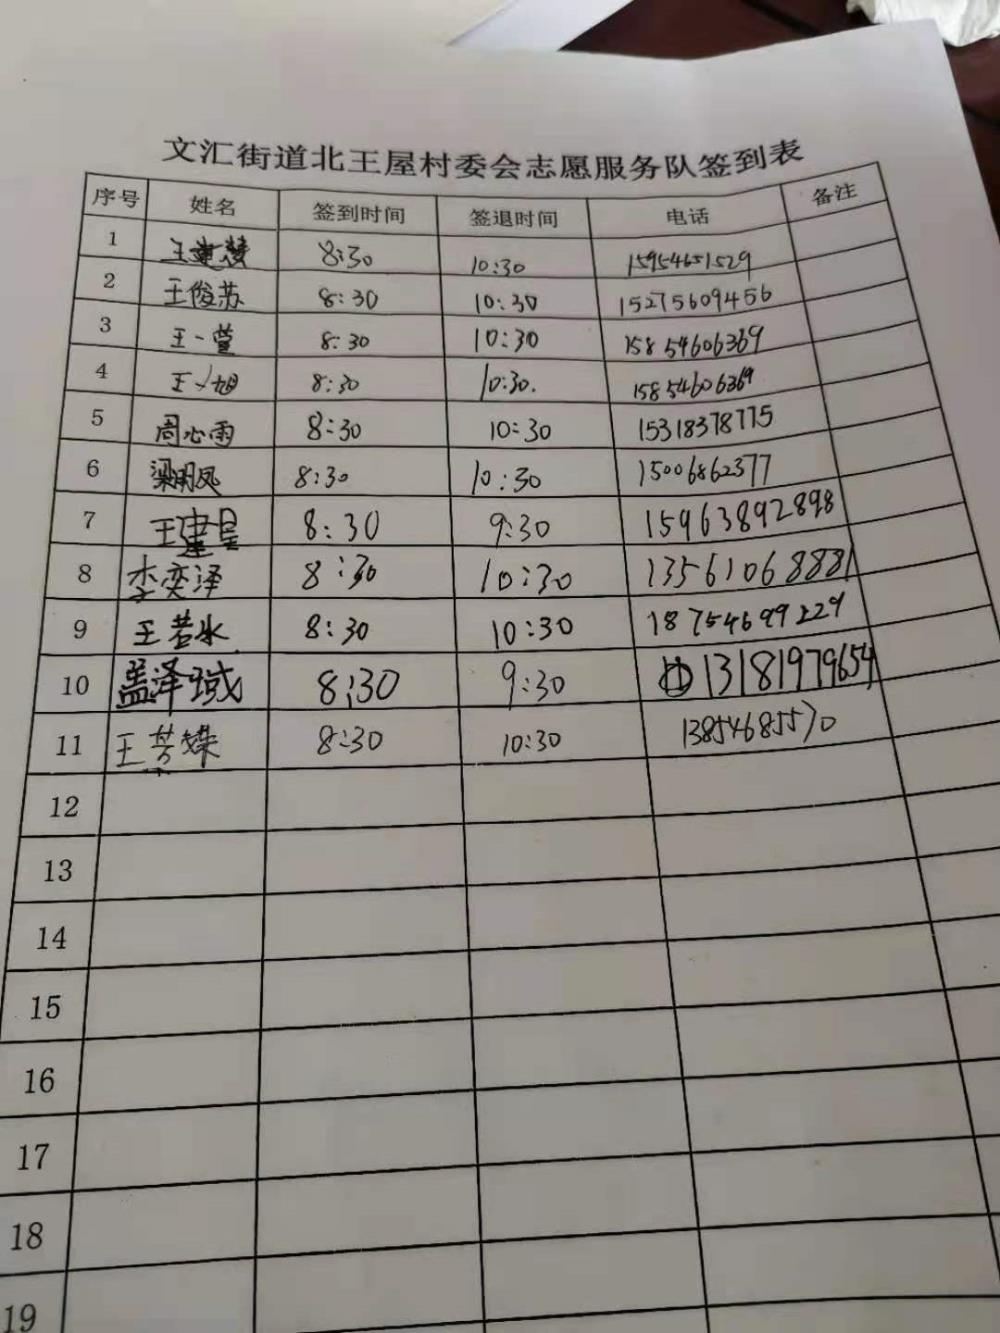 文汇街道北王屋村委会志愿服务队签到表
序号 姓名 签到时间 签退时间 电话 备注
1 王建 8:30 10:30 15954651529
2 王俊苏 8:30 10:30 15275609456
3 王一萱 8:30 10:30 15854606369
4 王 旭 8:30 10:30. 15854606369
5 周心雨 8:30 10:30 15318378775
6 梁明凤 8:30 10:30 15006862377
7 王建 8:30 9:30 15963892898
8 李奕泽 8:30 10:30 13561068881
9 王若水 8:30 10:30 18754699229
10 盖泽域 8:30 9:30 13181979654
11 王 8:30 10:30 13854685570
12
13
14
15
16
17
18
19